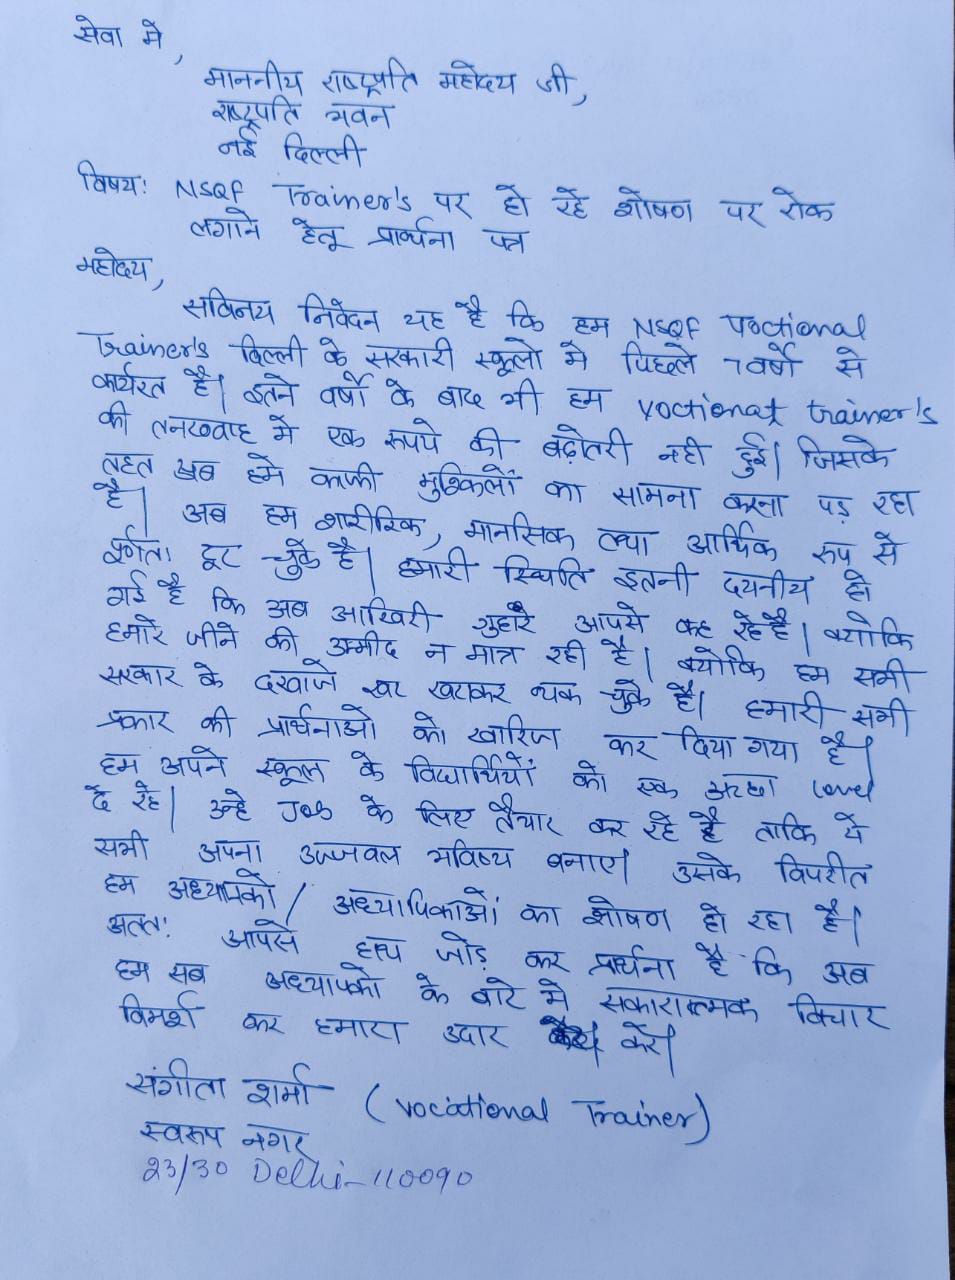 सेवा मे,
माननीय राष्ट्रपति महोदय जी,
राष्ट्रपति भवन
नई दिल्ली
विषय: NSQF Trainer's पर हो रहे शोषण पर रोक
लगाने हेतू प्रार्थना पत्र
महोदय,
सविनय निवेदन यह है कि हम NSQF Voctional
Trainer's दिल्ली के सरकारी स्कूलो मे पिछले 7 वर्षो से
कार्यरत है। इतने वर्षो के बाद भी हम voctional trainer's
की तनख्वाह मे एक रूपये की बढ़ोतरी नही हुई। जिसके
तहत अब हमे काफी मुश्किलों का सामना करना पड़ रहा
है। अब हम शारीरिक, मानसिक तथा आर्थिक रूप से
पूर्णता: टूट चुके है। हमारी स्थिति इतनी दयनीय हो
गई है कि अब आखिरी गुहार आपसे कह रहे है। क्योकि
हमारे जीने की उम्मीद न मात्र रही है। क्योकि हम सभी
सरकार के दरवाजे खट खटाकर थक चुके है। हमारी सभी
प्रकार की प्रार्थनाओ को खारिज कर दिया गया है।
हम अपने स्कूल के विद्यार्थियों को एक अच्छा level
दे रहे। उन्हे Job के लिए तैयार कर रहे है ताकि ये
सभी अपना उज्जवल भविष्य बनाए। उसके विपरीत
हम अध्यापको / अध्यापिकाओं का शोषण हो रहा है।
अतत: आपसे हाथ जोड़ कर प्रार्थना है कि अब
हम सब अध्यापको के बारे मे सकारात्मक विचार
विमर्श कर हमारा उदार करे।
संगीता शर्मा (Vocational Trainer)
स्वरूप नगर
23/30 Delhi-110090